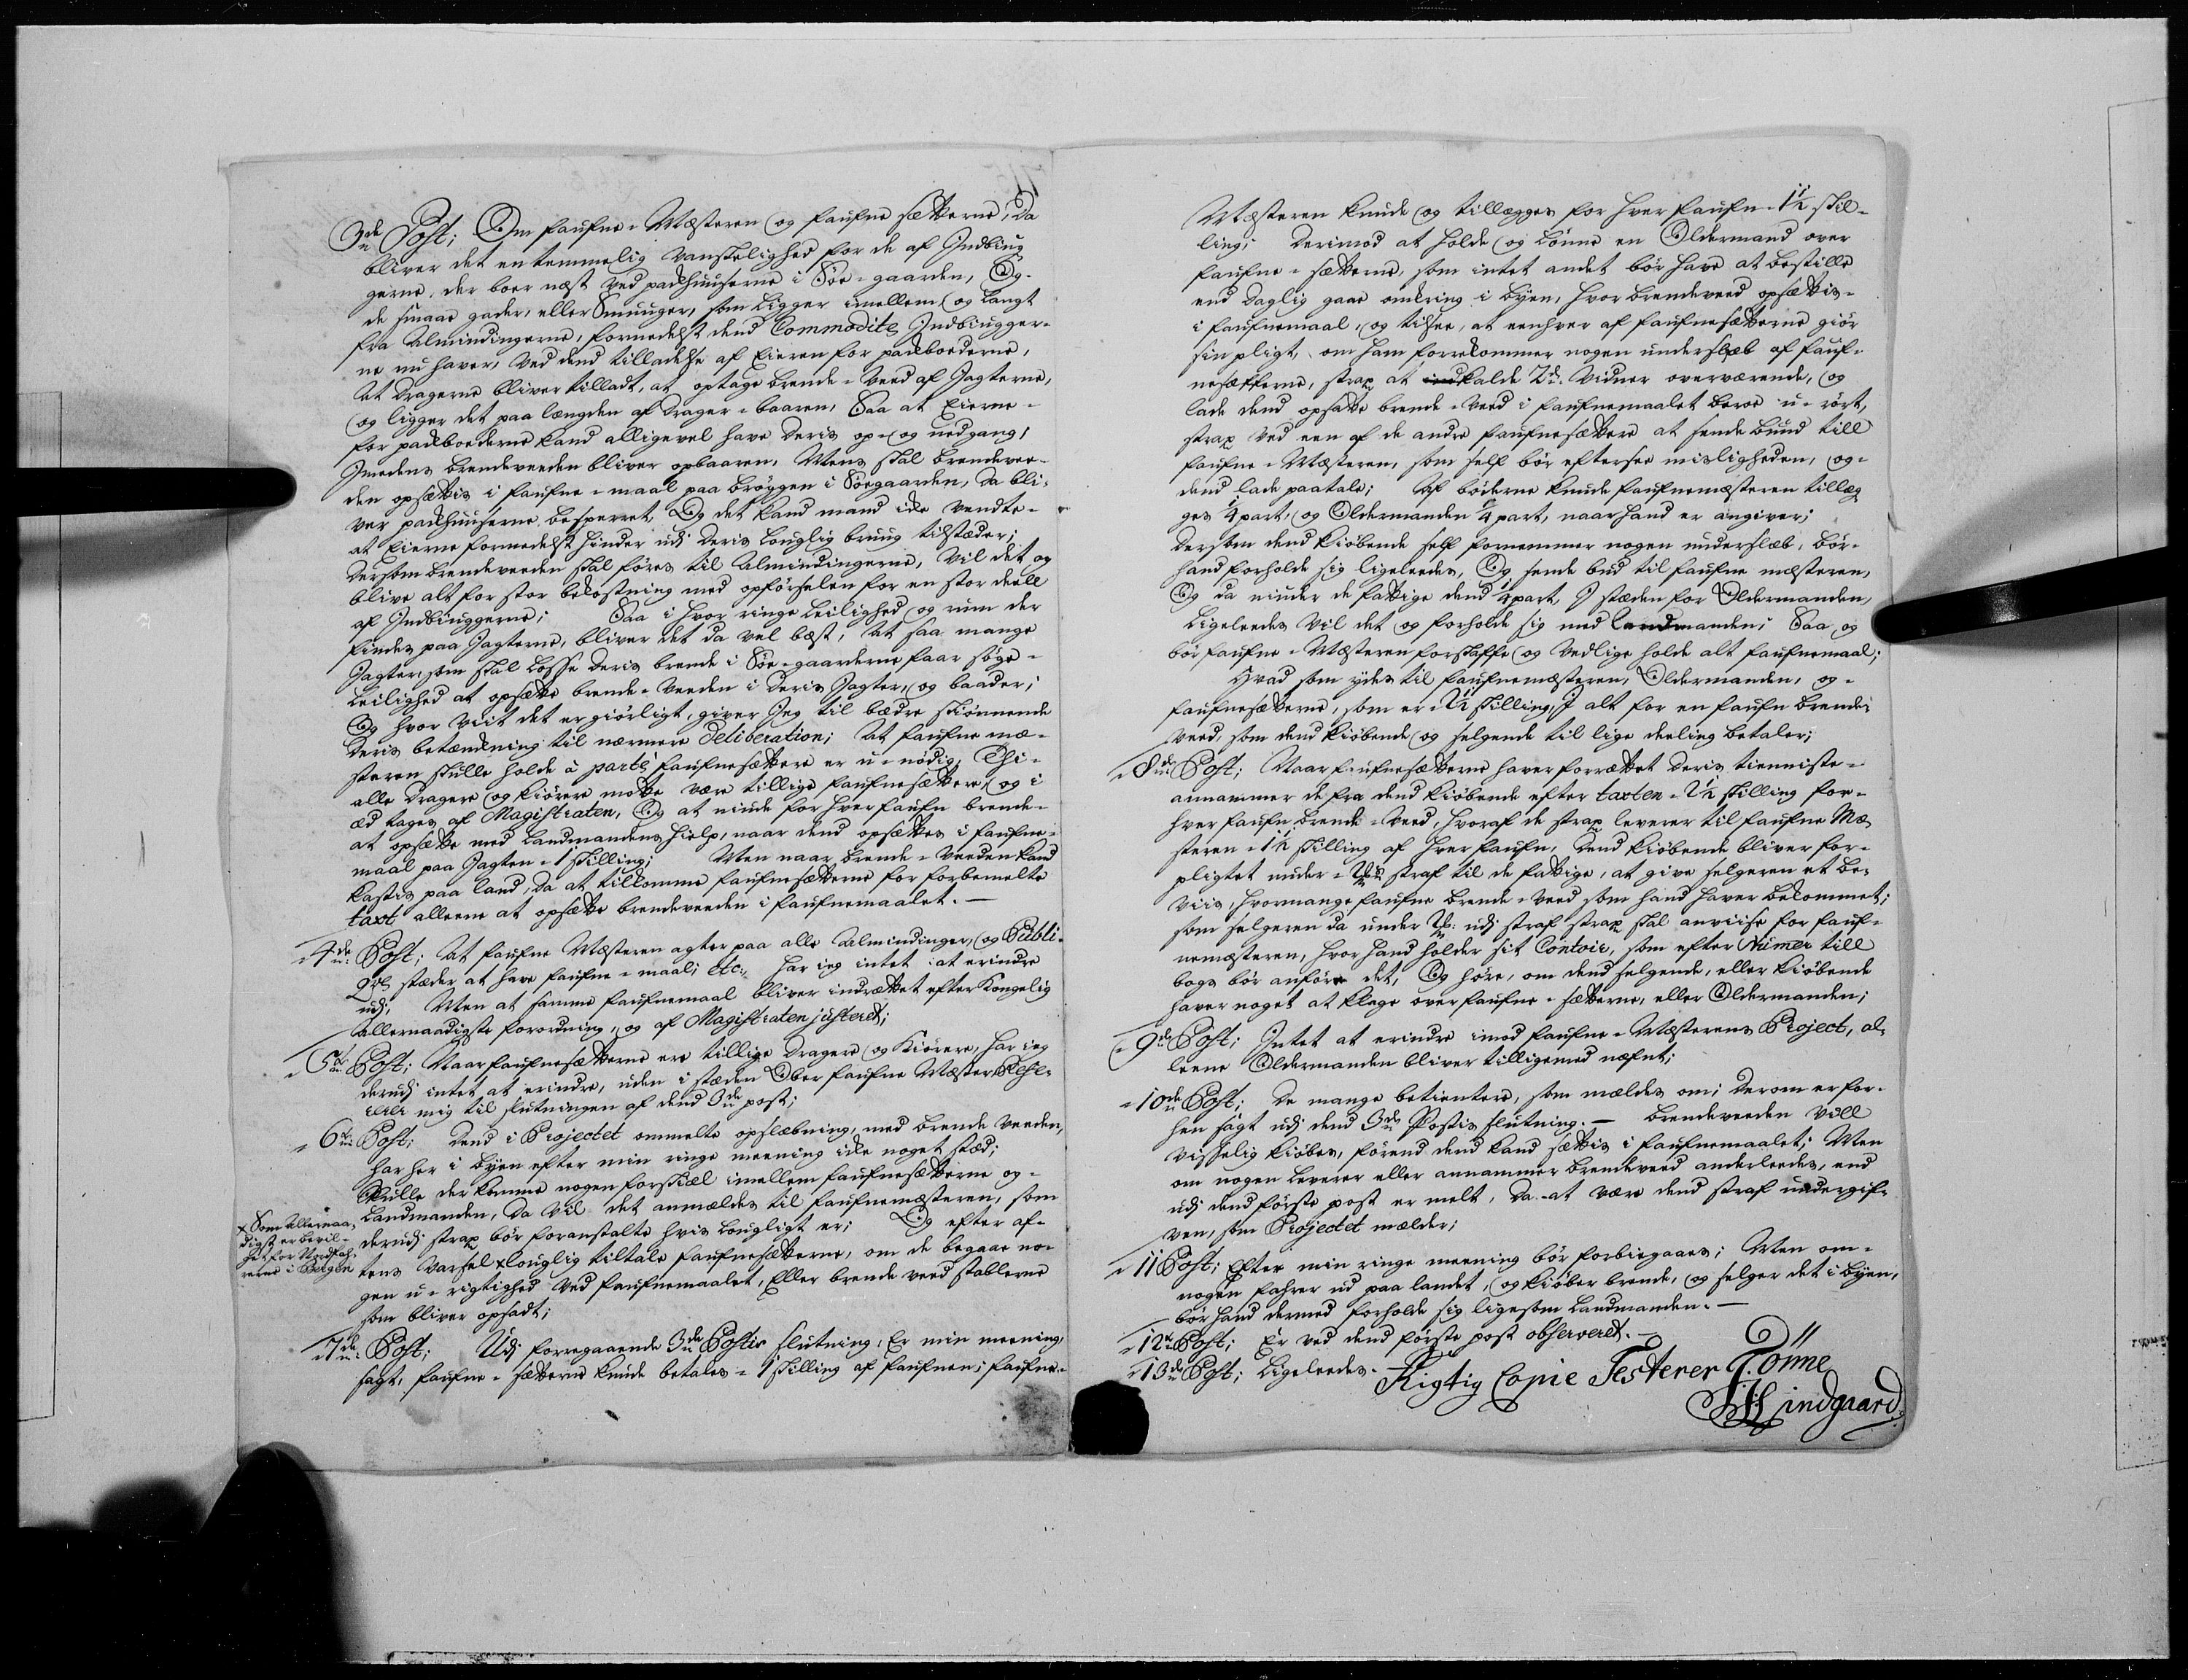 3de Post; Om faufne-Mæsteren og faufne sætterne, Da
bliver det en temmelig vanskelighed for de af Indbiug
gerne, der boer næst ved packhuuserne i Søe-gaarden, Og
de smaae gader, eller Smuuger, som ligger imellem og langt
fra Almindingerne, formedelst dend Commodite Indbiugger-
ne nu haver, ved dend tilladelse af Eieren for packboderne,
At Dragerne bliver tilladt, at optage brende-veed af Jagterne,
og ligger det paa længden af Drager-baaren, Saa at Eierne
for packboderne kand alligevel have deris op- og nedgang,
Imedens brendeveeden bliver opbaaren, Mens skal brendevee-
den opsættis i faufne-maal paa bryggen i Søegaarden, da bli-
ver packhuuserne besperret, Og det kand mand icke vendte
at Eierne formedelst hinder udj deris louglig bruug tilstæder;
Dersom brendeveeden skal føres til Almindingerne, vil det og
blive alt for stor bekostning med opførselen for en stor deell
af Indbiuggerne; Saa i hvor ringe leilighed og rum der
findes paa Jagterne, bliver det da vel bæst, At saa mange
Jagter, som skal losse deris brende i Søe-gaarderne faar søge
leilighed at opsætte brende-veeden i deris Jagter, og baader;
Og hvor viit det er giørligt, giver Jeg til bædre skiønnende
deris betænckning til nærmere Deliberation; At faufne mæ-
steren skulle holde à parte faufnesættere er u-nødig, Thi
alle Dragere og kiørere motte være tillige faufnesættere, og i
æd tages af Magistraten, Og at niude for hver faufn brende
at opsætte med Landmandens hielp, naar dend opsættes i faufne-
maal paa Jagten - 1 skilling; Men naar brende-veeden kand
kastis paa land, da at tilkomme faufnesætterne for forbemelte
taxt alleene at opsætte brendeveeden i faufnemaalet.
4de Post; At faufne Mæsteren agter paa alle Almindinger, og Publi-
qve stæder at have faufne-maal; etc: har ieg intet at erindre
udj, Men at samme faufnemaal bliver indrættet efter Kongelig
allernaadigste forordning, og af Magistraten justeret;
5te Post; Naar faufnesætterne ere tillige Dragere og Kiørere, har ieg
derudj intet at erindre, uden i stæden Ober faufne Mæster Refe-
rerer mig til slutningen af dend 3de post;
6te Post; Dend i Projectet ommelte opslæbning, med brende veeden,
har her i byen efter min ringe meening icke noget stæd;
Skulle der komme nogen forskiæl imellem faufnesætterne og
Landmanden, da vil det anmældes til faufnemæsteren, som
derudj strax bør foranstalte hvis lougligt er; Og efter af-
tens varsel x louglig tiltale faufnesætterne, om de begaar no-
gen u-rigtighed ved faufnemaalet, Eller brende veed stablerne
som bliver opsadt;
x Som Allernaa-
digst er bevil-
get for Nordfah-
rerne i Bergen
7de Post; Udj forregaaende 3de Postis slutning, Er min meening
sagt, faufne-sætterne kunde betales - 1 skilling af faufnen; faufne-
Mæsteren kunde og tillægges for hver faufn - 1 1/2 skil-
ling; Derimod at holde og lønne en Oldermand over
faufne-sætterne, som intet andet bør have at bestille
end daglig gaae omkring i byen, hvor brendeveed opsættis
i faufnemaal, og tilsee, at eenhver af faufnesætterne giør
sin pligt, om ham forrekommer nogen underslæb af fauf-
nesætterne, strax at kalde 2de vidner overværende, og
lade dend opsatte brende-veed i faufnemaalet beroe u-rørt,
strax ved een af de andre faufnesættere at sende bund till
faufne-Mæsteren, som self bør eftersee misligheden, og
dend lade paatale; Af bøderne kunde faufnemæsteren tillæg
ges 1/4 part, og Oldermanden 1/4 part, naar hand er angiver;
Dersom dend kiøbende self fornemmer nogen underslæb, bør
hand forholde sig ligeleedes, Og sende bud til faufne mæsteren,
Og da niuder de fattige dend 1/4 part, I stæden for Oldermanden,
Ligeleedes vil det og forholde sig med landmanden; Saa og
bør faufne-Mæsteren forskaffe og vedlige holde alt faufnemaal;
Hvad som ydes til faufnemæsteren, Oldermanden, og
faufnesætterne, som er 2 1/2 skilling, I alt for en faufn brende-
veed, som dend kiøbende og selgende til lige deeling betaler;
8de Post; Naar faufnesætterne haver forrættet deris tienniste
annammer de fra dend kiøbende efter taxten - 2 1/2 skilling for
hver faufn brende-veed, hvoraf de strax leverer til faufne Mæ-
steren - 1 1/2 skilling af hver faufn, dend kiøbende bliver for-
pligtet under straf til de fattige, at give selgeren et be-
viis, hvormange faufne brende-veed som hand haver bekommet;
som selgeren da under udj straf strax skal anviise for fauf-
nemæsteren, hvor hand holder sit Contoir, som efter Numer till
bogs bør anføre det, Og høre, om dend selgende, eller kiøbende
haver noget at klage over faufne-sætterne, eller Oldermanden;
9de Post; Intet at erindre imod faufne-Mæsterens Project, al-
leene Oldermanden bliver tilligemed næfnt;
10de Post; De mange betientere, som mældes om; Derom er for-
hen sagt udj dend 3de Postis slutning. - brendeveeden vill
visselig kiøbes, førend dend kand sættis i faufnemaalet; Men
om nogen leverer eller annammer brendeveed anderleedes, end
udj dend første post er melt, da at være dend straf undergif-
ven, som Projectet mælder;
11 Post; Efter min ringe meening bør forbiegaaes; Men om
nogen fahrer ud paa landet, og kiøber brende, og selger det i byen,
bør hand dermed forholde sig ligesom Landmanden.
12te Post; Er ved dend første post observeret.
13de Post; Ligeleedes.
Rigtig Copie Testerer T. Önne
Lindgaard